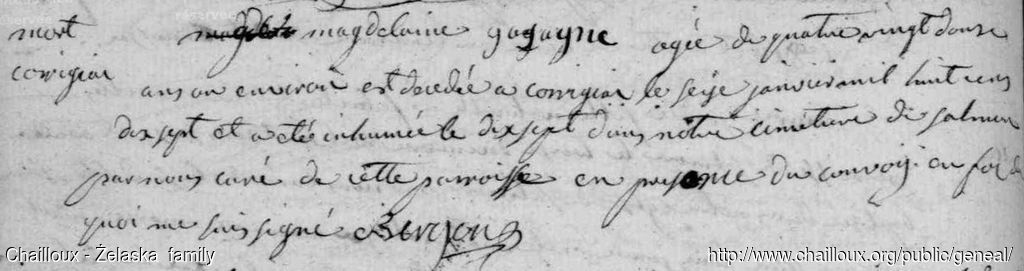 mort
corrigiai
magdelaine gagagne agée de quatre vingt douse
ans ou environ est decedée a corrigiai le seise janvier mil huit cens
dix sept et a été inhumée le dix sept dans notre cimetiere de
par nous curé de cette parroisse en presence du convoy en foi de
quoi me suis signé
Chailloux - Żelaska family
http://www.chailloux.org/public/geneal/